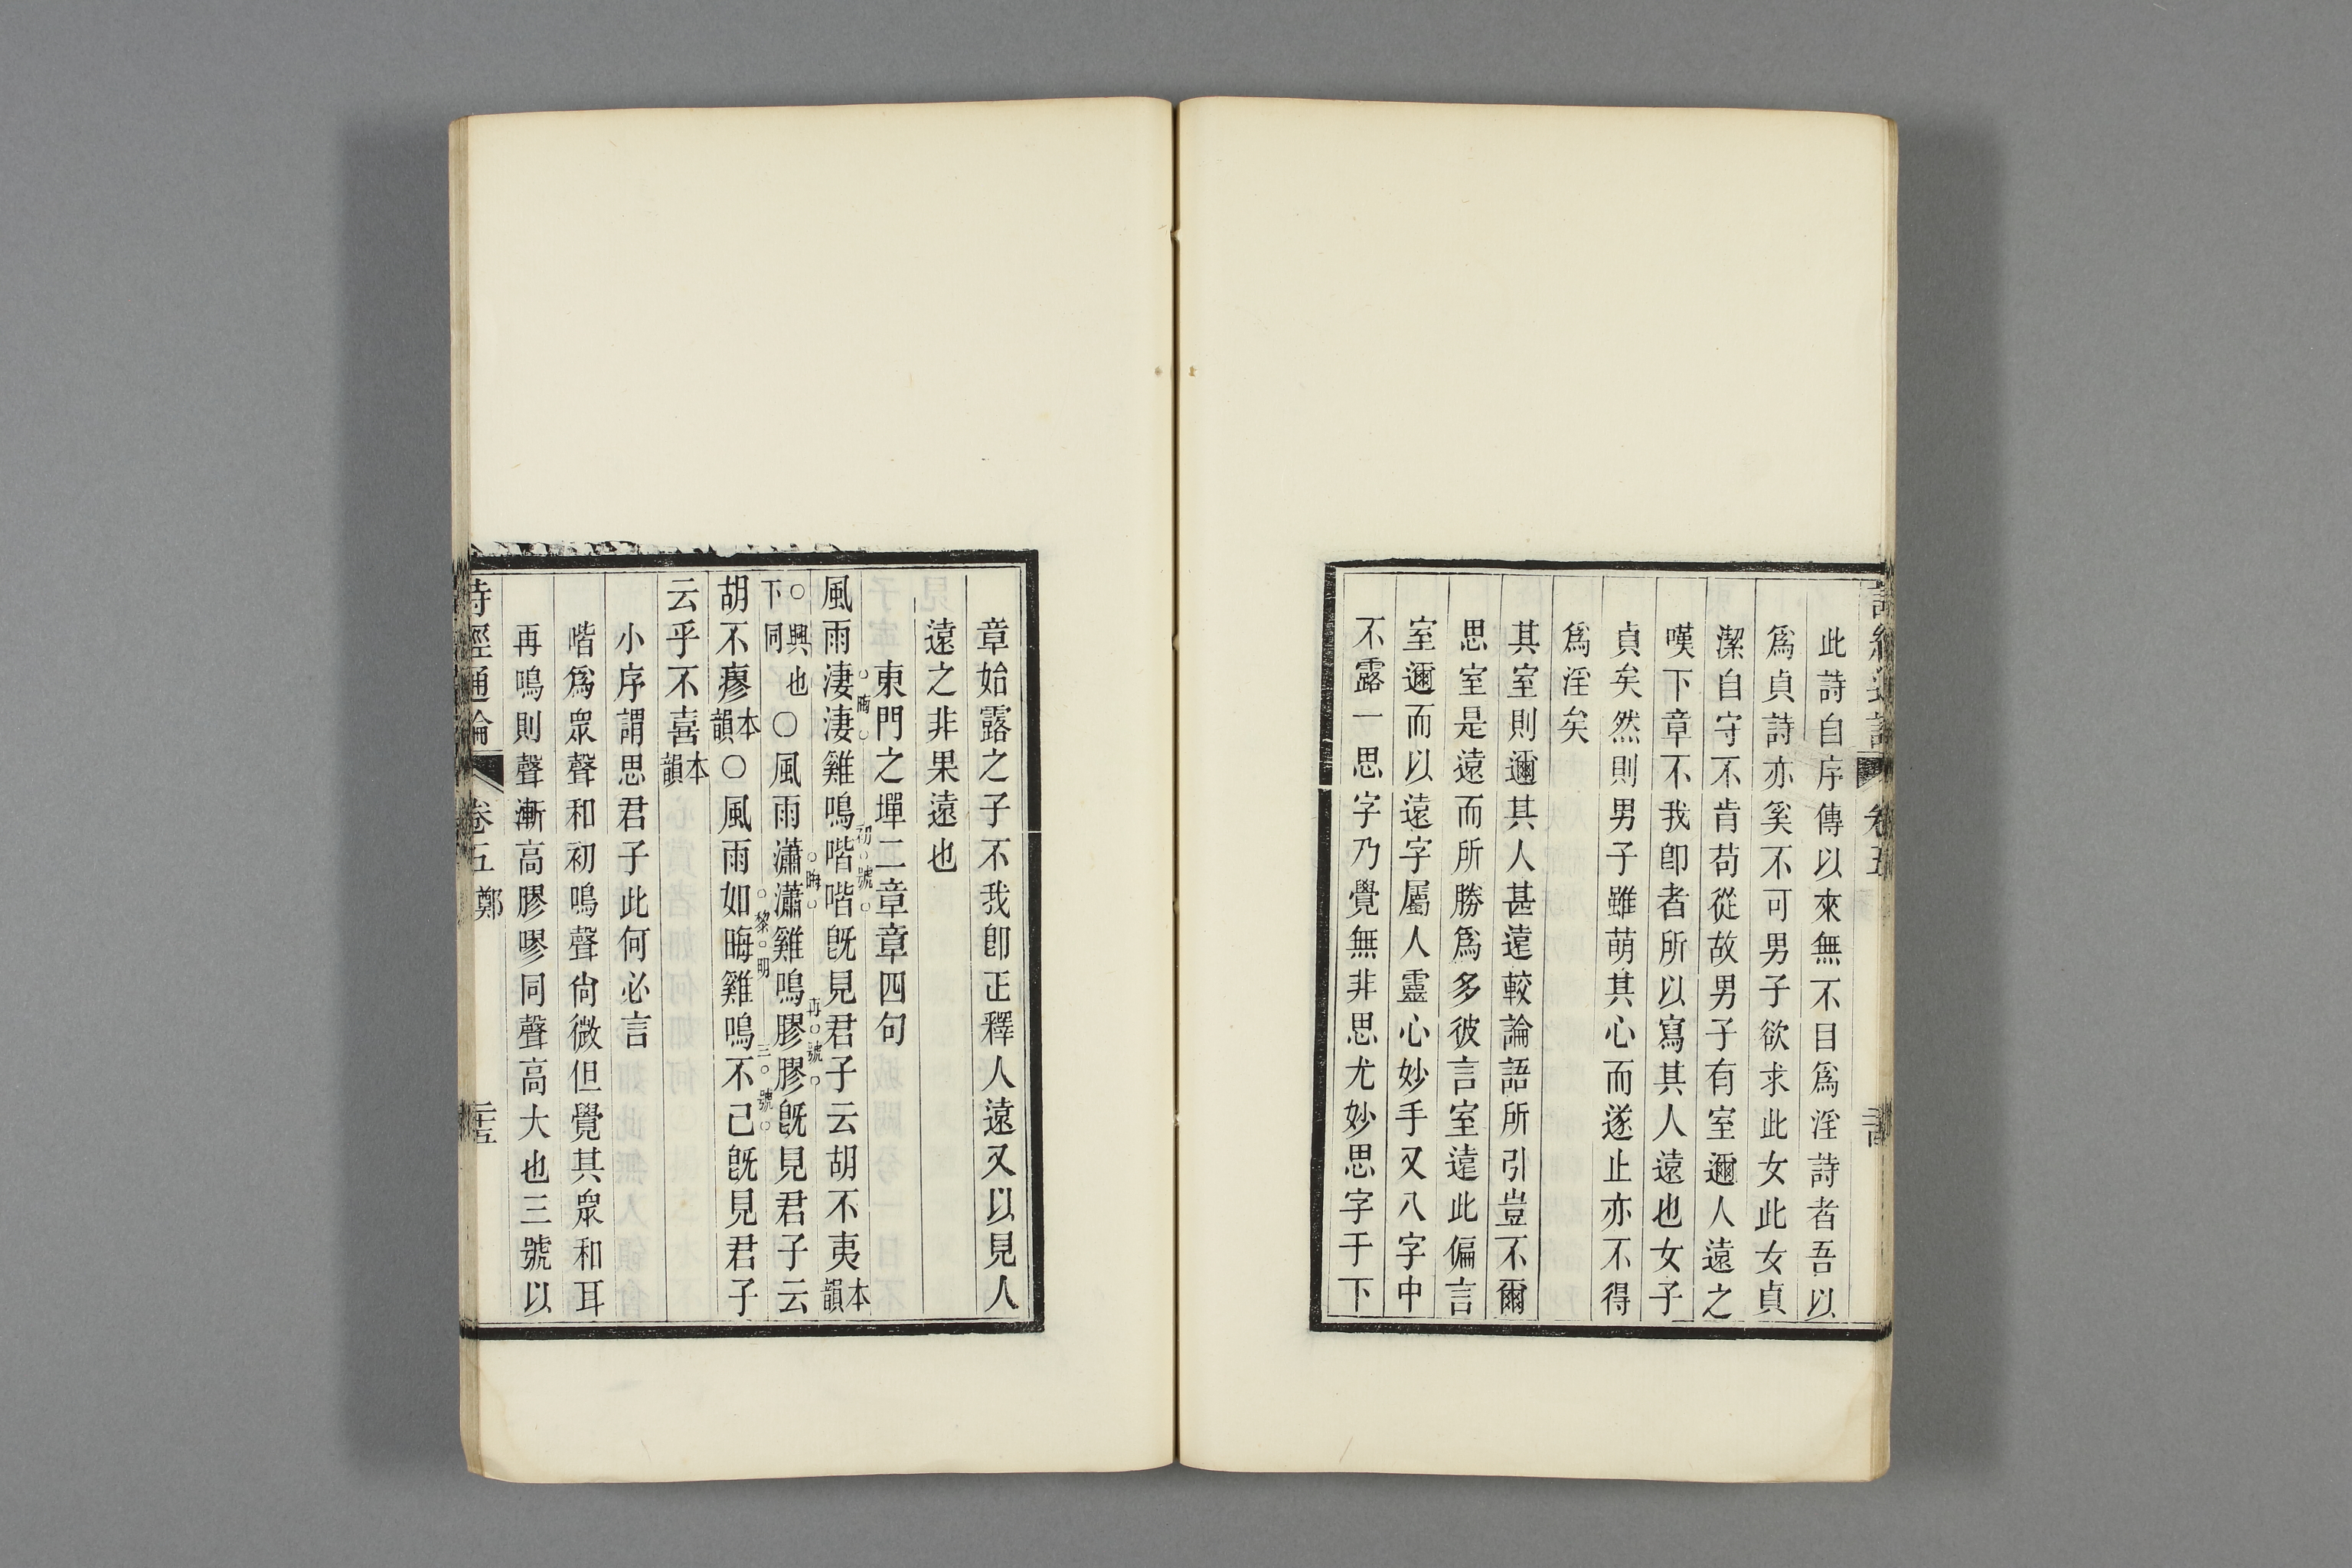 此詩自序傳以來無不目爲淫詩者吾以
爲貞詩亦奚不可男子欲求此女此女貞
潔自守不肯苟從故男子有室邇人遠之
嘆下章不我卽者所以寫其人遠也女子
貞矣然則男子雖萌其心而遂止亦不得
爲淫矣
其室則邇其人甚遠較論語所引豈不爾
思室是遠而所勝爲多彼言室遠此偏言
室邇而以遠字屬人靈心妙手又八字中
不露一思字乃覺無非思尤妙思字于下
章始露之子不我卽正釋人遠又以見人
遠之非果遠也
東門之墠二章章四句
風雨淒淒雞鳴喈喈旣見君子云胡不夷本韻
○興也下同○風雨瀟瀟雞鳴膠膠旣見君子云
胡不瘳本韻○風雨如晦雞鳴不已旣見君子
云乎不喜本韻
小序謂思君子此何必言
喈爲眾聲和初鳴聲尙微但覺其眾和耳
再鳴則聲漸高膠嘐同聲高大也三號以
詩經通論 卷五 鄭
初號
晦
再號
黎明
三號